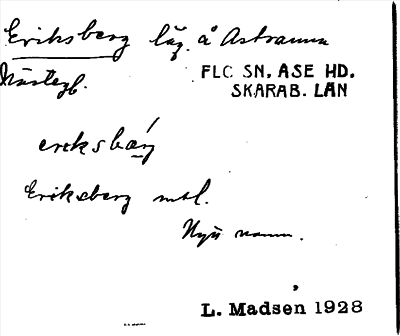 Eriksberg läg. å Astramma
FLO SN, ASE HD.
SKARAB. LÄN
eriksbärj
Eriksberg mtl.
Nytt namn.
L. Madsen 1928